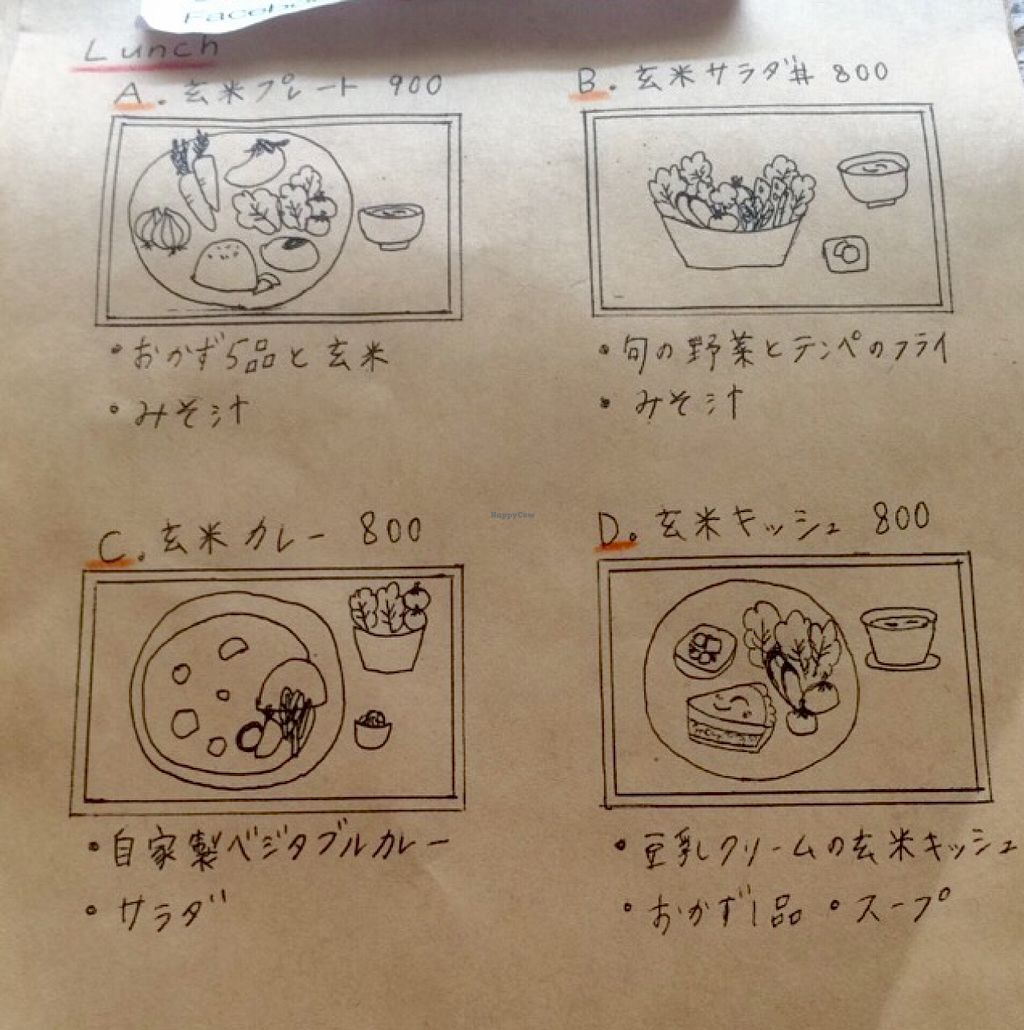 Lunch
A. 玄米プレート 900
・おかず5品と玄米
・みそ汁
B. 玄米サラダ丼 800
・旬の野菜とテンペのフライ
・みそ汁
C. 玄米カレー 800
・自家製ベジタブルカレー
・サラダ
D. 玄米キッシュ 800
・豆乳クリームの玄米キッシュ
・おかず1品 ・スープ
HappyCow